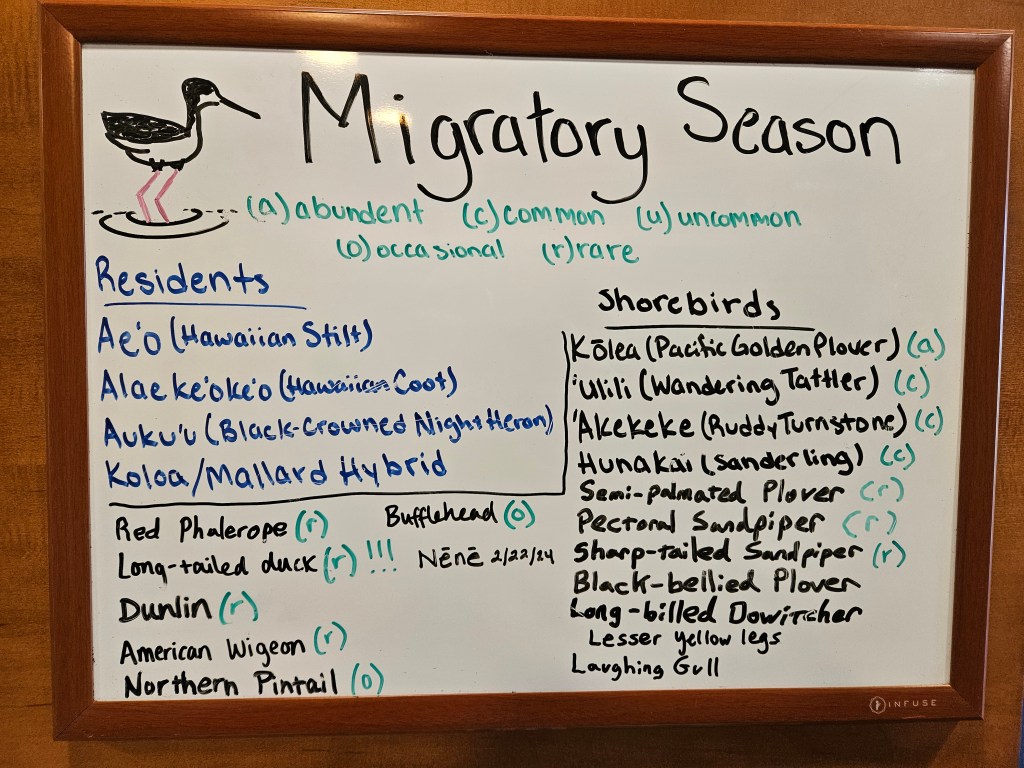 Migratory Season
(a) abundent (c) common (u) uncommon
(o) occasional (r) rare
Residents
Ae'o (Hawaiian Stilt)
Alae ke'oke'o (Hawaiian Coot)
Auku'u (Black-Crowned Night Heron)
Koloa/Mallard Hybrid
Red Phalerope (r)
Bufflehead (o)
Long-tailed duck (r) !!!
Nēnē 2/22/24
Dunlin (r)
American Wigeon (r)
Northern Pintail (o)
Shorebirds
Kōlea (Pacific Golden Plover) (a)
'ulili (Wandering Tattler) (c)
'Akekeke (Ruddy Turnstone) (c)
Hunakai (Sanderling) (c)
Semi-palmated Plover (r)
Pectoral Sandpiper (r)
Sharp-tailed Sandpiper (r)
Black-bellied Plover
Long-billed Dowitcher
Lesser yellow legs
Laughing Gull
INFUSE